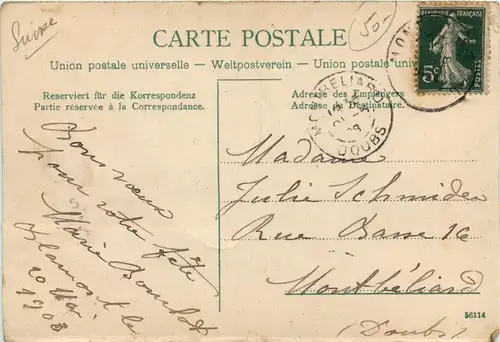 Suisse
50-
CARTE POSTALE
Union postale universelle — Weltpostverein — Union postale univ
Reserviert für die Korrespondenz
Partie réservée à la Correspondance.
Adresse des Empfängers
Adresse du Destinataire.
RÉPUBLIQUE FRANÇAISE
5c
POSTES
MONTBÉLIARD
DOUBS
Bons vœux
pour votre fête
Marie
le
20 Mai
1908
Madame
Julie Schmider
Rue Basse 16
Montbéliard
(Doubs)
56114